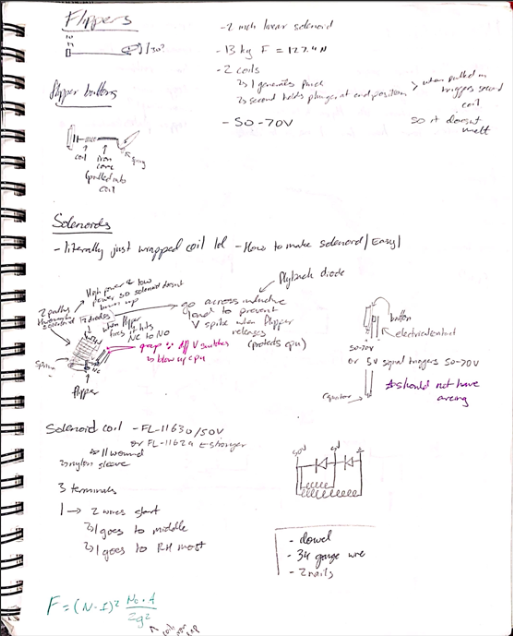 Flippers
- 2 inch linear solenoid
- 13 kg F = 127.4 N
- 2 coils
↳ 1 generates force
↳ second holds plunger at end position > when pulled in triggers second coil
so it doesnt melt
- 50-70V
flipper buttons
coil
iron core
(pulled into coil
Solenoids
- literally just wrapped coil lol - How to make solenoid / Easy!
flyback diode
High power & low power so solenoid doesnt burn up
2 paths through solenoid
go across inductive load to prevent V spike when flipper releases
(protects cpu)
when flipper fires, hits NC to NO
gap
diff V switches
↳ blow up cpu
NC
flipper
button
electrical contact
50-70V
or 5V signal triggers 50-70V
*should not have arcing
Solenoid coil - FL-11630/50V
or FL-11629 ← stronger
↳ nylon sleeve
3 terminals
1 → 2 wires start
↳ 1 goes to middle
↳ 1 goes to RH most
- dowel
- 34 gauge wire
- 2 nails